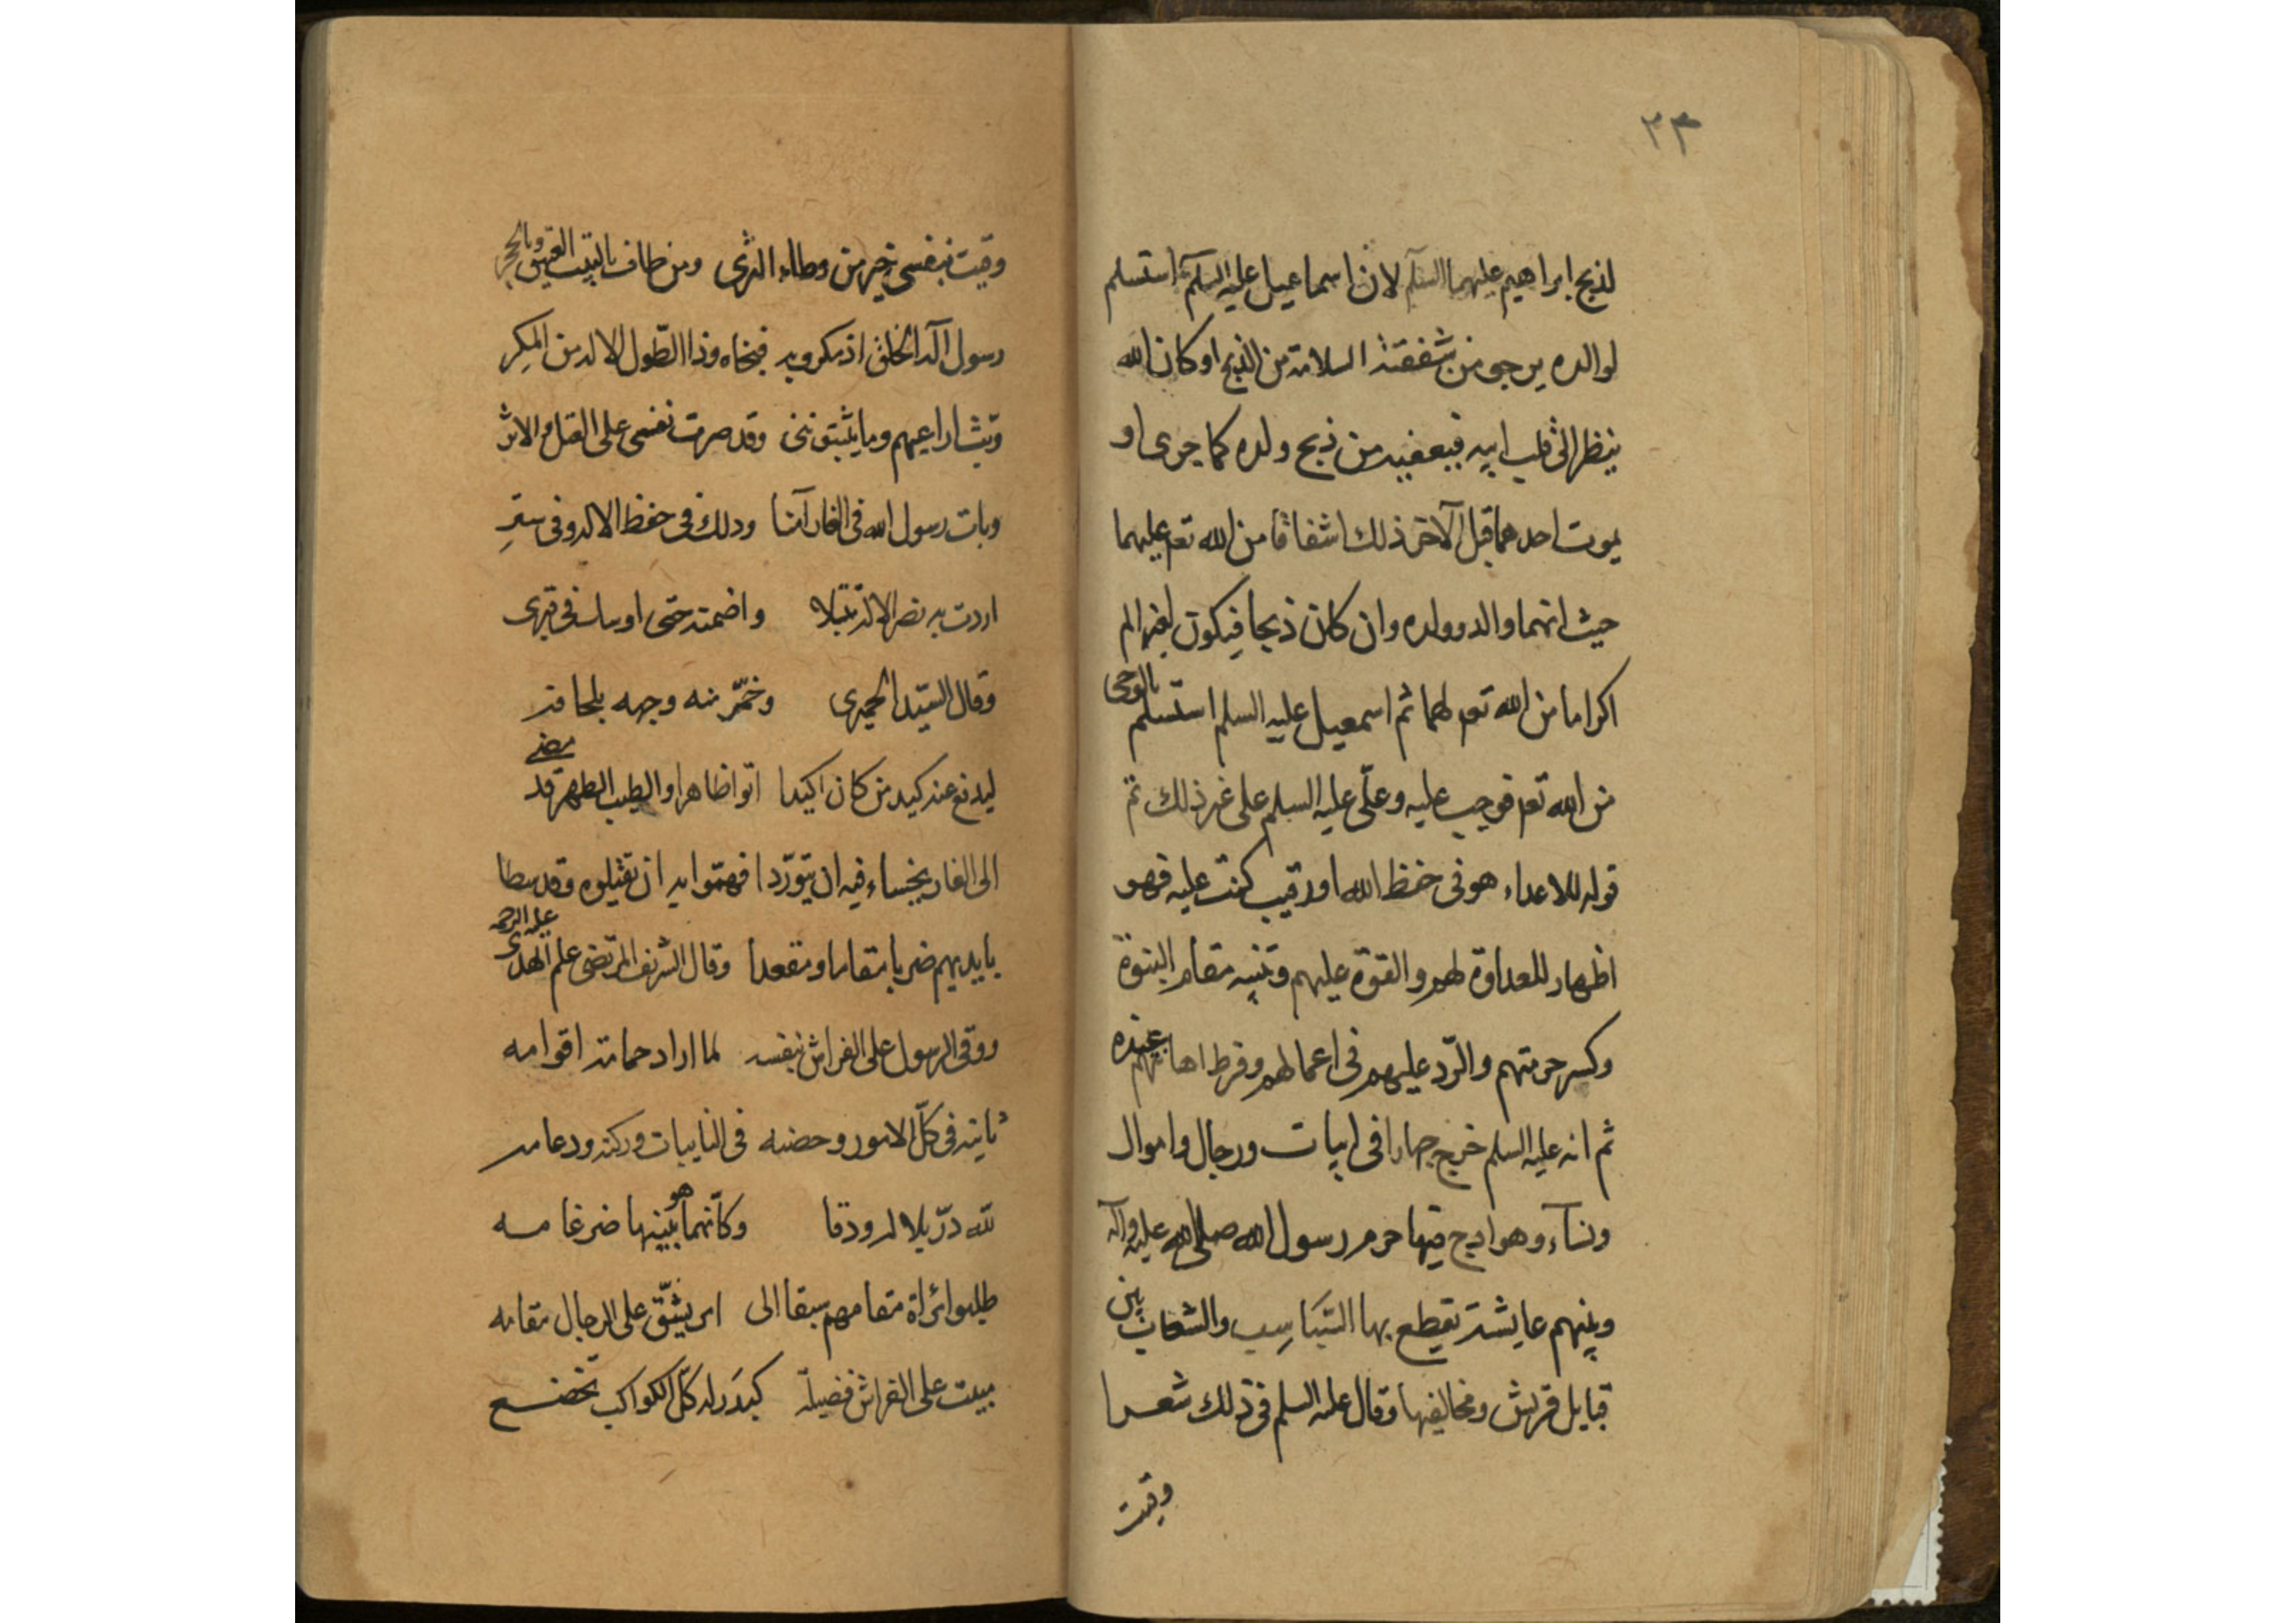 ٣٣
لذبح ابراهيم عليهما السلام لان اسماعيل عليه السلام استسلم
لوالده يرجى من شفقته السلامة من الذبح او كان الله
ينظر الى قلب ابيه فيعفيه من ذبح ولده كما جرى او
يموت احدهما قبل الآخر ذلك اشفاقا من الله تع عليهما
حيث انهما والد وولده وان كان ذبحا فيكون لغير الم
اكراما من الله تع لهما ثم اسمعيل عليه السلم استسلم بالوحى
من الله تع فوجب عليه وعلّى عليه السلم على غير ذلك ثم
قوله للاعداء هو فى حفظ الله اورقيب كنت عليه فهو
اظهار للعداوة لهم والقوة عليهم وتنبيه مقام النبوة
وكسر حرمتهم والرّد عليهم فى اعمالهم وفرط اهانتهم بعنده
ثم انه عليه السلم خرج جهارا فى ابيات ورجال واموال
ونسآء وهوادج فيها حرم رسول الله صلى الله عليه وآله
وبينهم عايشة تقطع بها السّبَاسِب والشعاب بين
قبايل قريش ومخالفيها وقال عليه السلم فى ذلك شعرا
وقيت
وقيت بنفسى خير من وطاء الثرى ومن طاف بالبيت العتيق وبالحجر
رسول آله الخلق اذ مكروبه فنجاه وذا الطّول الاله من المكِر
وبت اراعيهم وما يثبتوننى وقد صبرت نفسى على القتل والاثر
وبات رسول الله فى الغار آمنا وذلك فى حفظ الاله وفى سترِ
اردت به نصر الاله تبتلا واضمته حتى اوسد فى قبرى
وقال السّيّد الحميرى وخمّر منه وجهه بلحافه
ليدفع عنه كيد من كان اكيدا اتوا ظاهرا والطيب الطهر قد مضى
الى الغار يخشاء فيه ان يتورّدا فهمّوا به ان يقتلوه وقد سطا
بايديهم ضربا مقاما ومقعدا وقال الشريف المرتضى علم الهدى عليه الرحمه
ووقى الرسول على الفراش بنفسه لما اراد حمامه اقوامه
ثانيه فى كلّ الامور وحصنه فى النايبات وركنه ودعامه
للّه درّ بلاله ودفا وكأنّما هو بينها ضرغامه
طلبوا مقامهم سبقا الى امر يشقّ على الرجال مقامه
مبيت على الفراش فضيلة كبَدَر له كلّ الكواكب تخضع